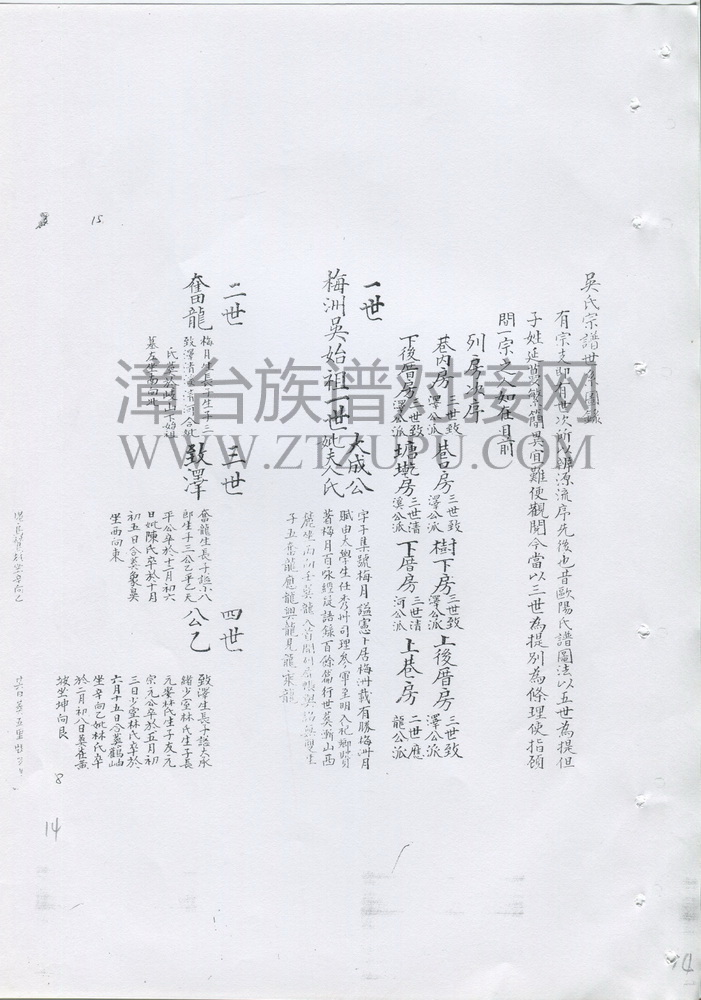 吳氏宗譜世系圖錄
有宗支即有世次所以辨源流序先後也昔歐陽氏譜圖法以五世為提但
子姓延蔓繁簡異宜難便觀閱今當以三世為提別為條理使指顧
間一宗之人如在目前
列房次序
巷內房 三世致澤公派 巷口房 三世致澤公派 樹下房 三世致澤公派 上後厝房 三世致澤公派
下後厝房 三世致澤公派 塘墘房 三世清溪公派 下厝房 三世清河公派 上巷房 二世應龍公派
一世
梅洲吳始祖一世 大成公 妣夫人氏
字子集號梅月諡憲卜居梅洲載有勝梅州月
賦由太學生任秀州司理參軍至明入祀鄉賢
著梅月百咏經疑語錄百餘篇行世葬漸山西
子五奮龍應龍興龍見龍乘龍
二世
奮龍
梅月生長子生子三
致澤清溪清河合妣
三世
致澤
奮龍生長子諡小八
郎生子三公乙平乙天
平公卒於十二月初六
日妣陳氏卒於十月
初五日合葬象吳
坐西向東
四世
公乙
致澤生長子諡大承
緒少室林氏生子長
元宴林氏生子友元
宗元公卒於五月初
三日少室林氏卒於
六月十五日合葬鶴岫
坐辛向乙妣林氏卒
於二月初八日葬崔黃
坡坐坤向艮
15
8
14
漳台族譜对接网
WWW.ZTZUPU.COM